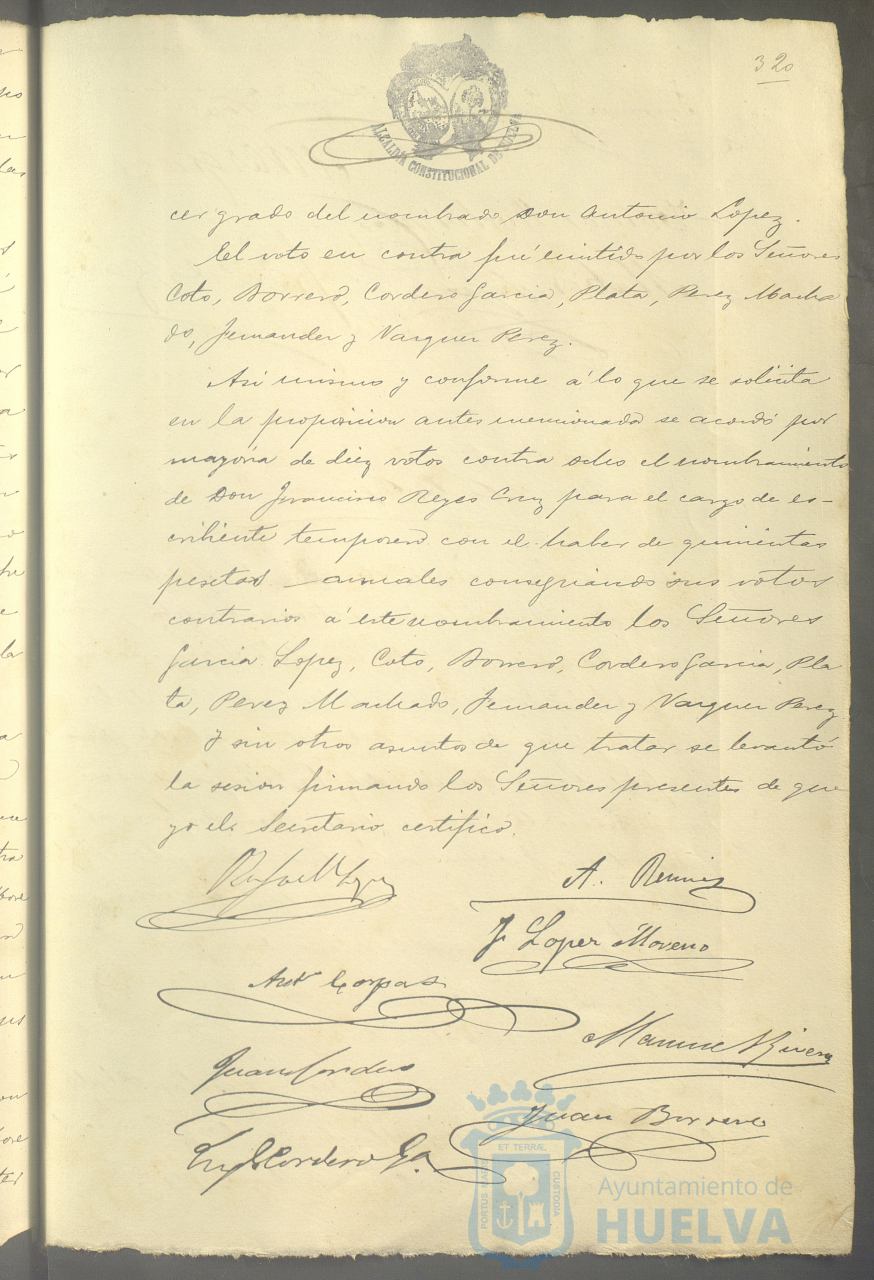 320
ALCALDÍA CONSTITUCIONAL DE HUELVA
cer grado del nombrado Don Antonio Lopez.
El voto en contra fué emitido por los Señores
Coto, Borrero, Cordero Garcia, Plata, Perez Macha
do, Fernandez y Vazquez Perez.
Asi mismo y conforme á lo que se solicita
en la proposicion antes mencionada se acordó por
mayoria de diez votos contra ocho el nombramiento
de Don Francisco Reyes Cruz para el cargo de es-
cribiente temporero con el haber de quinientas
pesetas anuales consignando sus votos
contrarios á este nombramiento los Señores
Garcia Lopez, Coto, Borrero, Cordero Garcia, Pla
ta, Perez Machado, Fernandez y Vazquez Perez.
Y sin otros asuntos de que tratar se levantó
la sesion firmando los Señores presentes de que
yo el Secretario certifico.
Rafael Lopez
A.
J Lopez Moreno
Antº Corpas
Manuel Rivera
Juan Cordero
Juan Borrero
Cordero Gª
PORTUS MARIS ET TERRÆ CUSTODIA
Ayuntamiento de
HUELVA